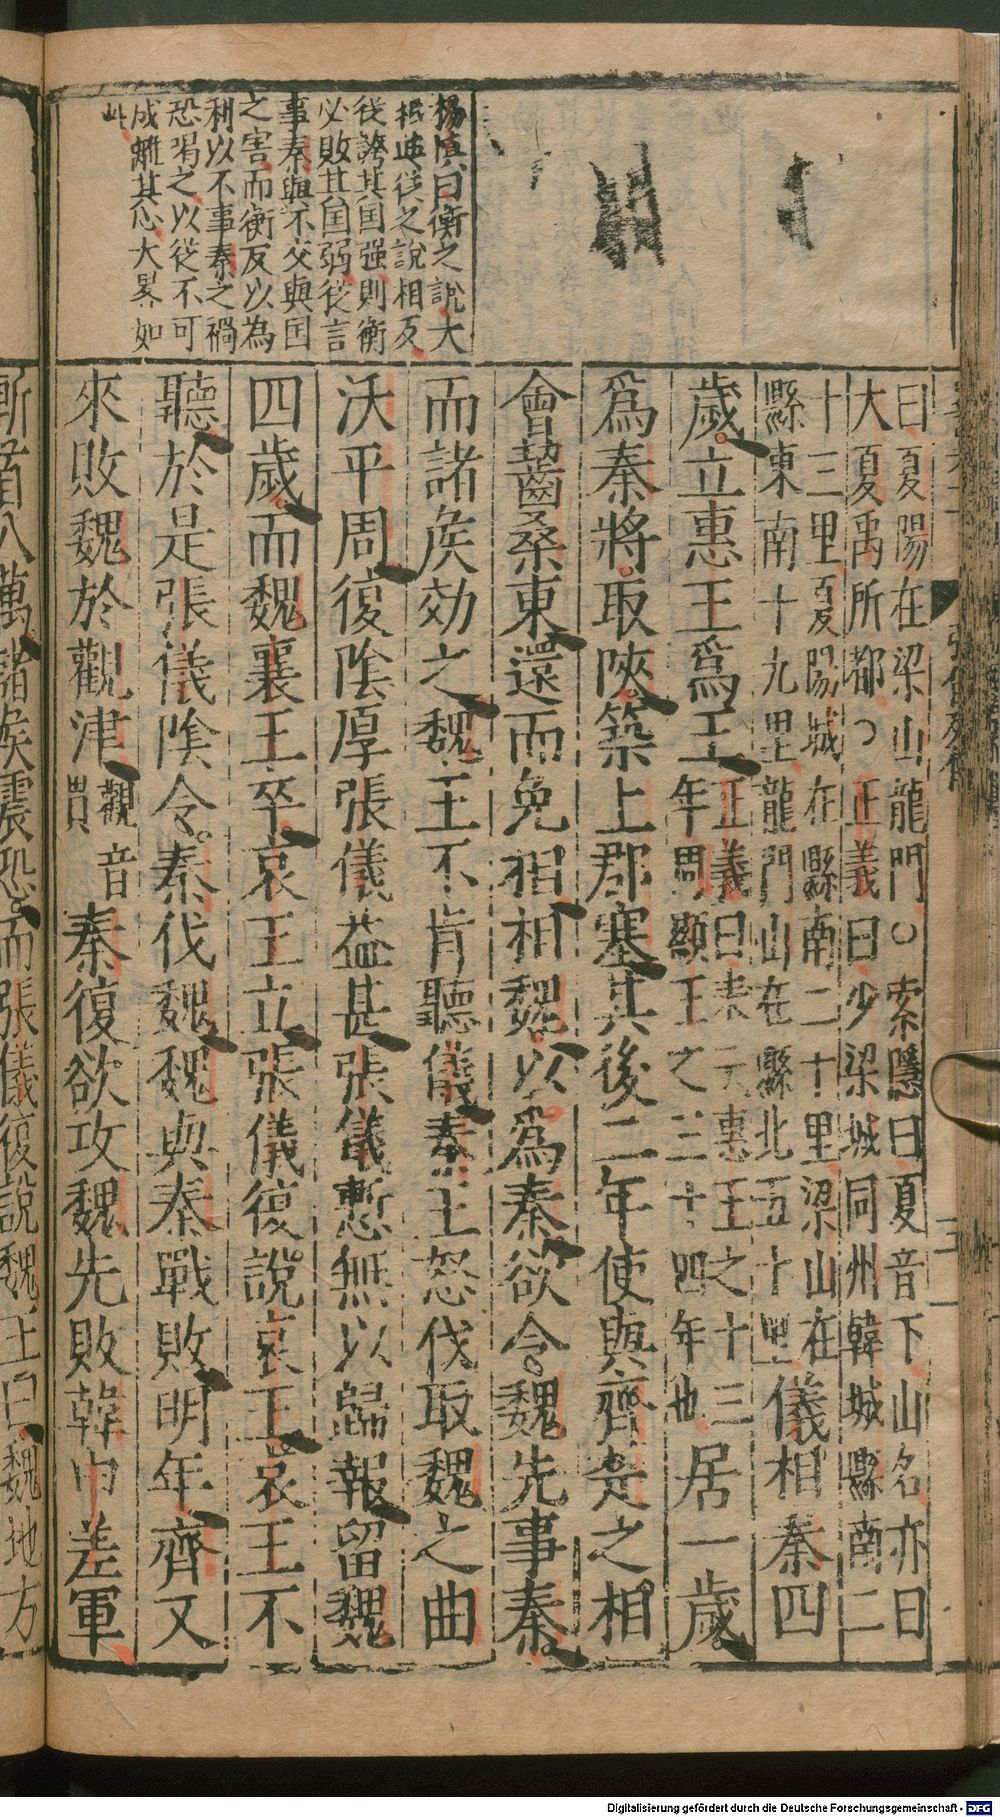 楊慎曰衡之說大
抵與從之說相反
從誇其国强則衡
必敗其国弱從言
事秦與不交與国
之害而衡反以為
利以不事秦之禍
恐喝之以從不可
成離其心大畧如
此
曰夏陽在梁山龍門○索隱曰夏音下山名亦曰
大夏禹所都○正義曰少梁城同州韓城縣南二
十三里夏陽城在縣南二十里梁山在
縣東南十九里龍門山在縣北五十里儀相秦四
歲立惠王爲王正義曰表云惠王之十三
年周顯王之三十四年也居一歲
爲秦將取陝築上郡塞其後二年使與齊楚之相
會齧桑東還而免相相魏以爲秦欲令魏先事秦
而諸侯效之魏王不肯聽儀秦王怒伐取魏之曲
沃平周復陰厚張儀益甚張儀慙無以歸報留魏
四歲而魏襄王卒哀王立張儀復說哀王哀王不
聽於是張儀陰令秦伐魏魏與秦戰敗明年齊又
來敗魏於觀津觀音
貫秦復欲攻魏先敗韓申差軍
斬首八萬諸侯震恐而張儀復說魏王曰魏地方
張儀列傳
三
Digitalisierung gefördert durch die Deutsche Forschungsgemeinschaft - DFG